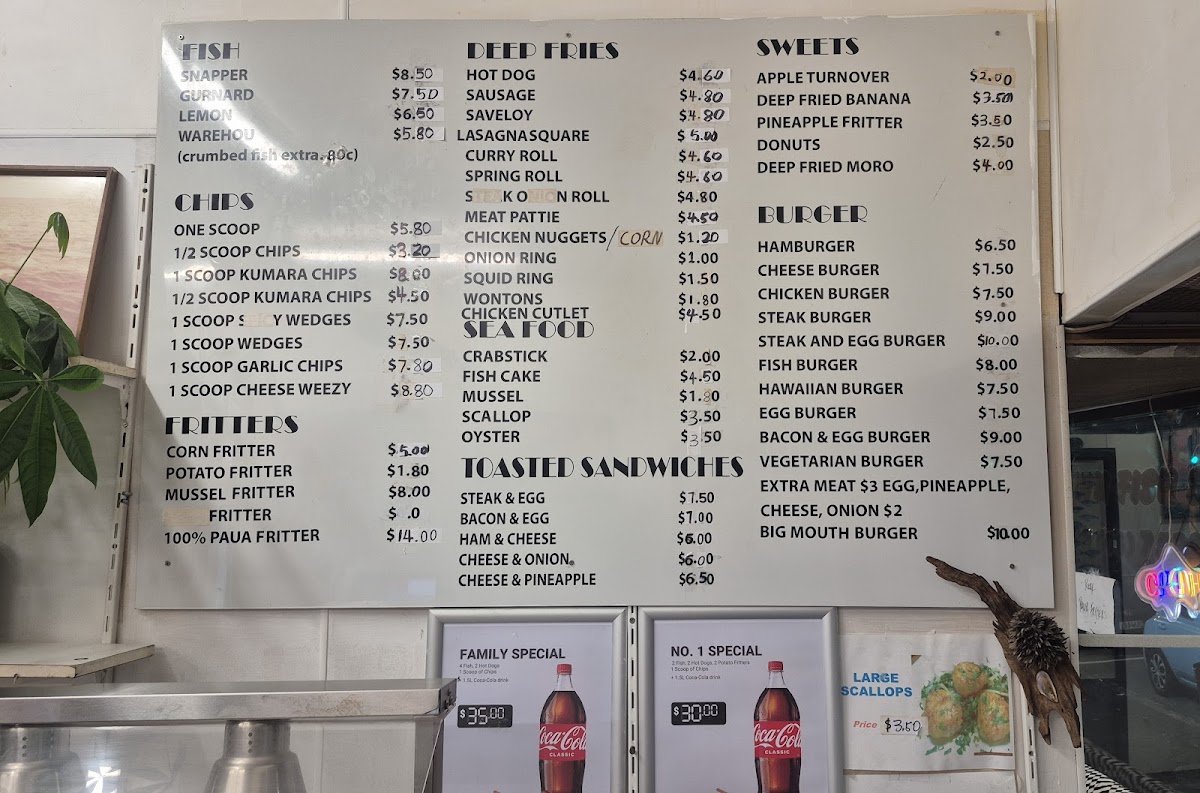 FISH
SNAPPER $8.50
GURNARD $7.50
LEMON $6.50
WAREHOU $5.80
(crumbed fish extra. 80c)
CHIPS
ONE SCOOP $5.80
1/2 SCOOP CHIPS $3.20
1 SCOOP KUMARA CHIPS $8.00
1/2 SCOOP KUMARA CHIPS $4.50
1 SCOOP S Y WEDGES $7.50
1 SCOOP WEDGES $7.50
1 SCOOP GARLIC CHIPS $7.80
1 SCOOP CHEESE WEEZY $8.80
FRITTERS
CORN FRITTER $5.00
POTATO FRITTER $1.80
MUSSEL FRITTER $8.00
FRITTER $ .0
100% PAUA FRITTER $14.00
DEEP FRIES
HOT DOG $4.60
SAUSAGE $4.80
SAVELOY $4.80
LASAGNASQUARE $5.00
CURRY ROLL $4.60
SPRING ROLL $4.60
STEAK ONION ROLL $4.80
MEAT PATTIE $4.50
CHICKEN NUGGETS/CORN $1.20
ONION RING $1.00
SQUID RING $1.50
WONTONS $1.80
CHICKEN CUTLET $4.50
SEA FOOD
CRABSTICK $2.00
FISH CAKE $4.50
MUSSEL $1.80
SCALLOP $3.50
OYSTER $3.50
TOASTED SANDWICHES
STEAK & EGG $7.50
BACON & EGG $7.00
HAM & CHEESE $6.00
CHEESE & ONION $6.00
CHEESE & PINEAPPLE $6.50
SWEETS
APPLE TURNOVER $2.00
DEEP FRIED BANANA $3.50
PINEAPPLE FRITTER $3.50
DONUTS $2.50
DEEP FRIED MORO $4.00
BURGER
HAMBURGER $6.50
CHEESE BURGER $7.50
CHICKEN BURGER $7.50
STEAK BURGER $9.00
STEAK AND EGG BURGER $10.00
FISH BURGER $8.00
HAWAIIAN BURGER $7.50
EGG BURGER $7.50
BACON & EGG BURGER $9.00
VEGETARIAN BURGER $7.50
EXTRA MEAT $3 EGG,PINEAPPLE,
CHEESE, ONION $2
BIG MOUTH BURGER $10.00
FAMILY SPECIAL
4 Fish, 2 Hot Dogs
1 Scoop of Chips
+ 1.5L Coca-Cola drink
$35.00
Coca-Cola
CLASSIC
NO. 1 SPECIAL
2 Fish, 2 Hot Dogs, 2 Potato Fritters
1 Scoop of Chips
+ 1.5L Coca-Cola drink
$30.00
Coca-Cola
CLASSIC
LARGE
SCALLOPS
Price $3.50